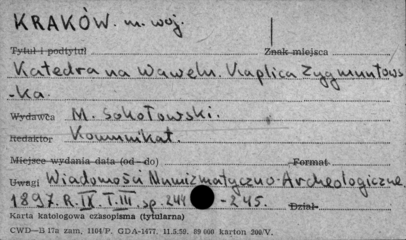 KRAKÓW. m. woj.
Tytuł i podtytuł Znak miejsca
Katedra na Wawelu. Kaplica Zygmuntows
-ka.
Wydawca M. Sokołowski.
Redaktor Komunikat.
Miejsce wydania data (od-do) Format
Uwagi Wiadomości Numizmatyczno-Archeologiczne
1897. R. IX. T. III. sp. 244 - 245. Dział
Karta katologowa czasopisma (tytularna)
CWD—B 17a zam. 1104/P. GDA-1477. 11.5.50. 89 600 karton 200/V.